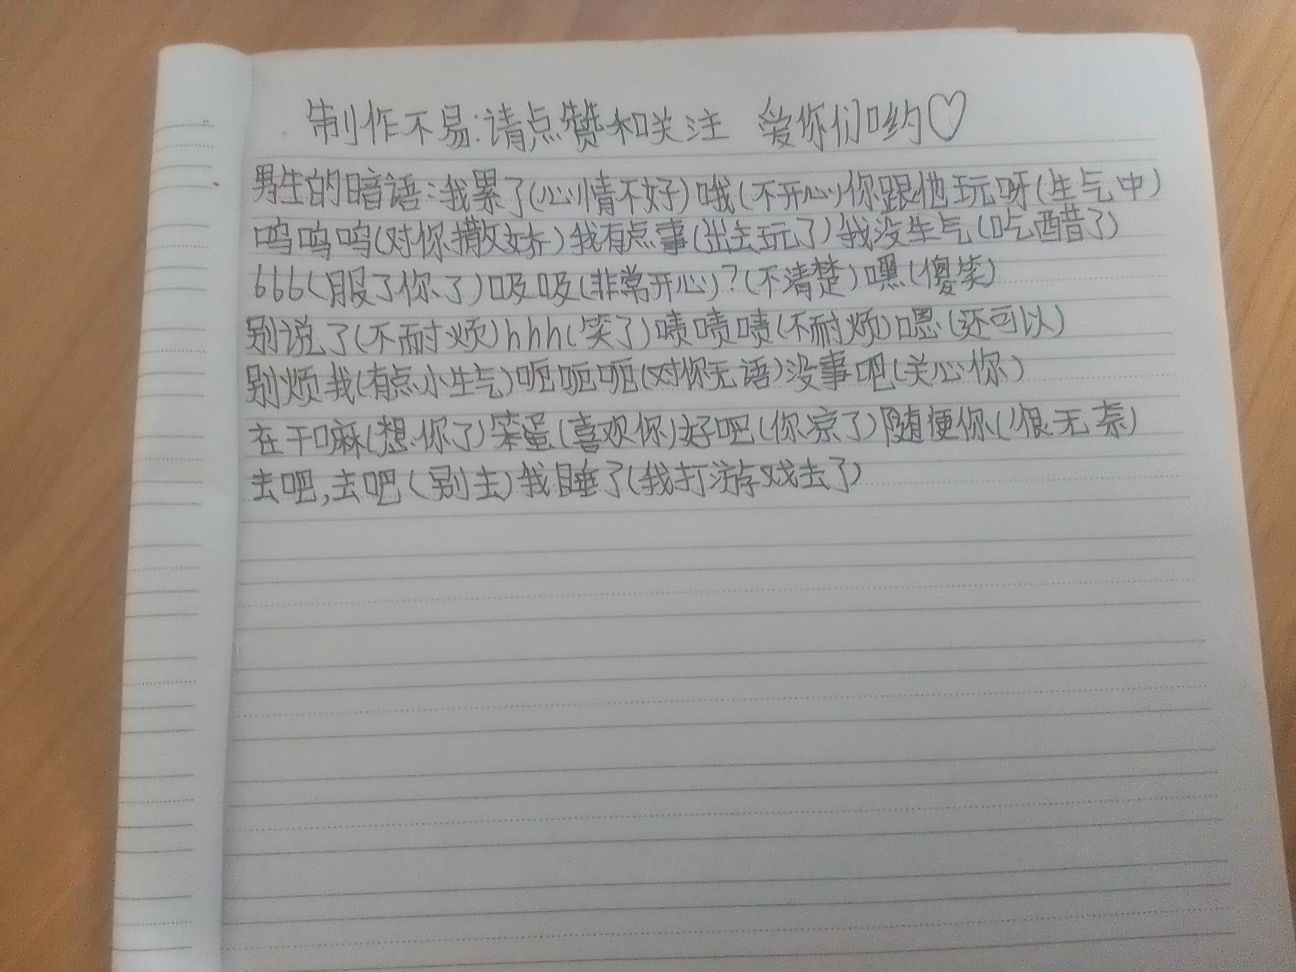 制作不易:请点赞和关注 爱你们哟♡
男生的暗语:我累了(心情不好)哦(不开心)你跟他玩呀(生气中)
呜呜呜(对你撒娇)我有点事(出去玩了)我没生气(吃醋了)
666(服了你了)吸吸(非常开心)?(不清楚)嘿(傻笑)
别说了(不耐烦)hhh(笑了)啧啧啧(不耐烦)嗯(还可以)
别烦我(有点小生气)呃呃呃(对你无语)没事吧(关心你)
在干嘛(想你了)笨蛋(喜欢你)好吧(你凉了)随便你(很无奈)
去吧,去吧(别去)我睡了(我打游戏去了)